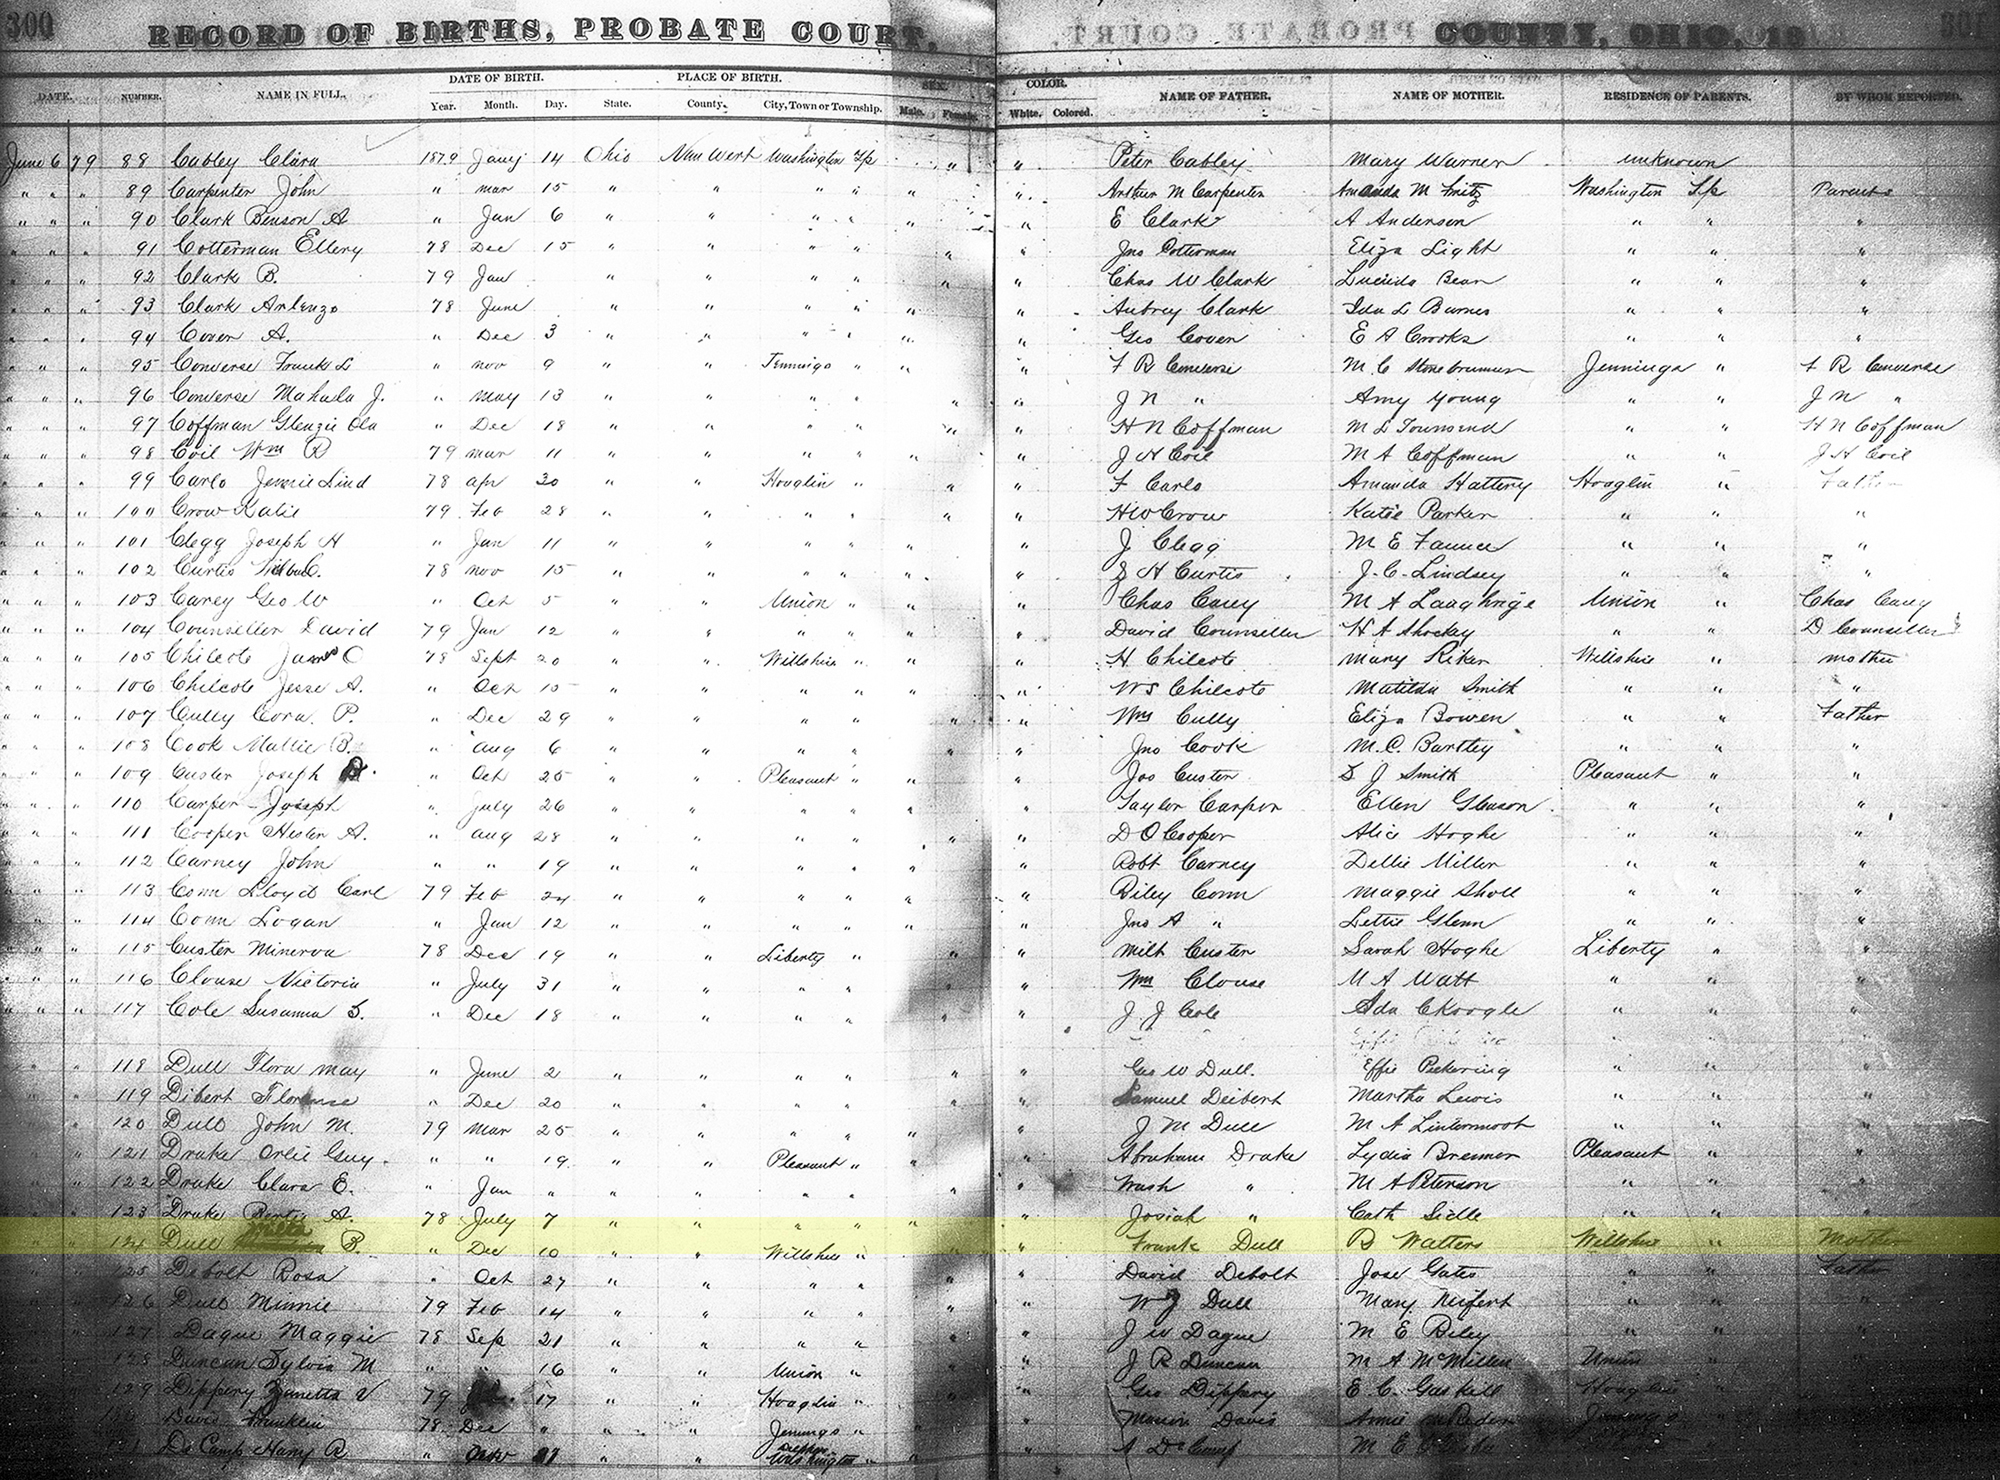 300 RECORD OF BIRTHS, PROBATE COURT, COUNTY, OHIO, 18 301
DATE. NUMBER. NAME IN FULL. DATE OF BIRTH. PLACE OF BIRTH. SEX. COLOR. NAME OF FATHER. NAME OF MOTHER. RESIDENCE OF PARENTS. BY WHOM REPORTED.
Year. Month. Day. State. County. City, Town or Township. Male. Female. White. Colored.
June 6 79 88 Cabley Clara 1879 Jany 14 Ohio Van Wert Washington Tp " " Peter Cabley Mary Warner unknown
" " " 89 Carpenter John " mar 15 " " " " " " Arthur M Carpenter Amanda M Smitz Washington Tp Parents
" " " 90 Clark Benson A " Jan 6 " " " " " " E Clark A Anderson " " "
" " " 91 Cotterman Ellery 78 Dec 15 " " " " " " Jno Cotterman Eliza Light " " "
" " " 92 Clark B. 79 Jan " " " " " " Chas W Clark Lucinda Bean " " "
" " " 93 Clark Arlenzo 78 June " " " " " " Aubrey Clark Ida L Barnes " " "
" " " 94 Coven A. " Dec 3 " " " " " " Geo Coven E A Crooks " " "
" " " 95 Converse Frank L " nov 9 " " Jennings " " " F R Converse M. C Jennings " F R Converse
" " " 96 Converse Mahala J. " may 13 " " " " " " J N " Amy Young " " J N "
" " " 97 Coffman Glenzie Ola " Dec 18 " " " " " " H N Coffman M L Townsend " " H N Coffman
" " " 98 Coil Wm R 79 mar 11 " " " " " " J H Coil M A Coffman " " J H Coil
" " " 99 Carlo Jennie Lind 78 apr 30 " " Hoaglin " " " F Carlo Amanda Hattery Hoaglin " Father
" " " 100 Crow Katie 79 Feb 28 " " " " " " H W Crow Katie Parker " " "
" " " 101 Clegg Joseph H " Jan 11 " " " " " " J Clegg M E " " "
" " " 102 Curtis C. 78 nov 15 " " " " " " H Curtis J. C. Lindsey " " "
" " " 103 Carey Geo W " Oct 5 " " Union " " " Chas Carey M A Union " Chas Carey
" " " 104 Counseller David 79 Jan 12 " " " " " " David Counseller H A Shockey " " D Counseller
" " " 105 Chilcote James O 78 Sept 20 " " Willshire " " " H Chilcote Mary Riker Willshire " mother
" " " 106 Chilcote Jesse A. " Oct 15 " " " " " " W S Chilcote Matilda Smith " " "
" " " 107 Cully Cora P. " Dec 29 " " " " " " Wm Cully Eliza Bowen " " Father
" " " 108 Cook Mattie B. " aug 6 " " " " " " Jno Cook M. C. Bartley " " "
" " " 109 Custer Joseph " Oct 25 " " Pleasant " " " Jos Custer S J Smith Pleasant " "
" " " 110 Carper Joseph " July 26 " " " " " " Taylor Carper Ellen Gleason " " "
" " " 111 Cooper Hester A. " aug 28 " " " " " " D O Cooper Alice Hoghe " " "
" " " 112 Carney John " " 19 " " " " " " Robt Carney Dellie Miller " " "
" " " 113 Conn Lloyd Carl 79 Feb 24 " " " " " " Riley Conn Maggie Sholl " " "
" " " 114 Conn Logan " Jan 12 " " " " " " Jno A " Lettie Glenn " " "
" " " 115 Custer Minerva 78 Dec 19 " " Liberty " " " Milt Custer Sarah Hoghe Liberty " "
" " " 116 Clouse Victoria " July 31 " " " " " " Wm Clouse M A Watt " " "
" " " 117 Cole Susanna S. " Dec 18 " " " " " " J J Cole Ida " " "
" " 118 Dull Flora May " June 2 " " " " " " Geo W Dull. Effie Pickering " " "
" " 119 Dibert Florence " Dec 20 " " " " " " Samuel Deibert Martha Lewis " " "
" " 120 Dull John M. 79 Mar 25 " " " " " " J M Dull M A Lintermoot " " "
" " 121 Drake Orlie Guy. " " 19 " " Pleasant " " " Abraham Drake Lydia Bremer Pleasant " "
" " 122 Drake Clara E. " Jan " " " " " " " Wash " M A Peterson " " "
" " 123 Drake Bertie A. 78 July 7 " " " " " " Josiah " Cath Sidle " " "
" " 124 Dull B. " Dec 10 " " Willshire " " Frank Dull B Walters Willshire " Mother
" " 125 Debolt Rosa " Oct 27 " " " " " " David Debolt Jose Gates " " Father
" " 126 Dull Minnie 79 Feb 14 " " " " " " W J Dull Mary Neifert " " "
" 127 Dague Maggie 78 Sep 21 " " " " " " J W Dague M E Riley " " "
" 128 Duncan Sylvia M " " 16 " " Union " " " J R Duncan M A McMillen Union "
129 Dippery Zanetta V 79 17 " " Hoaglin " " " Geo Dippery E. C. Gaskill Hoaglin
Davis Franklin 78 Dec " " " Jennings " " " Davis Annie Jennings
De Camp Harry R " " " Washington " " " A De Camp M E